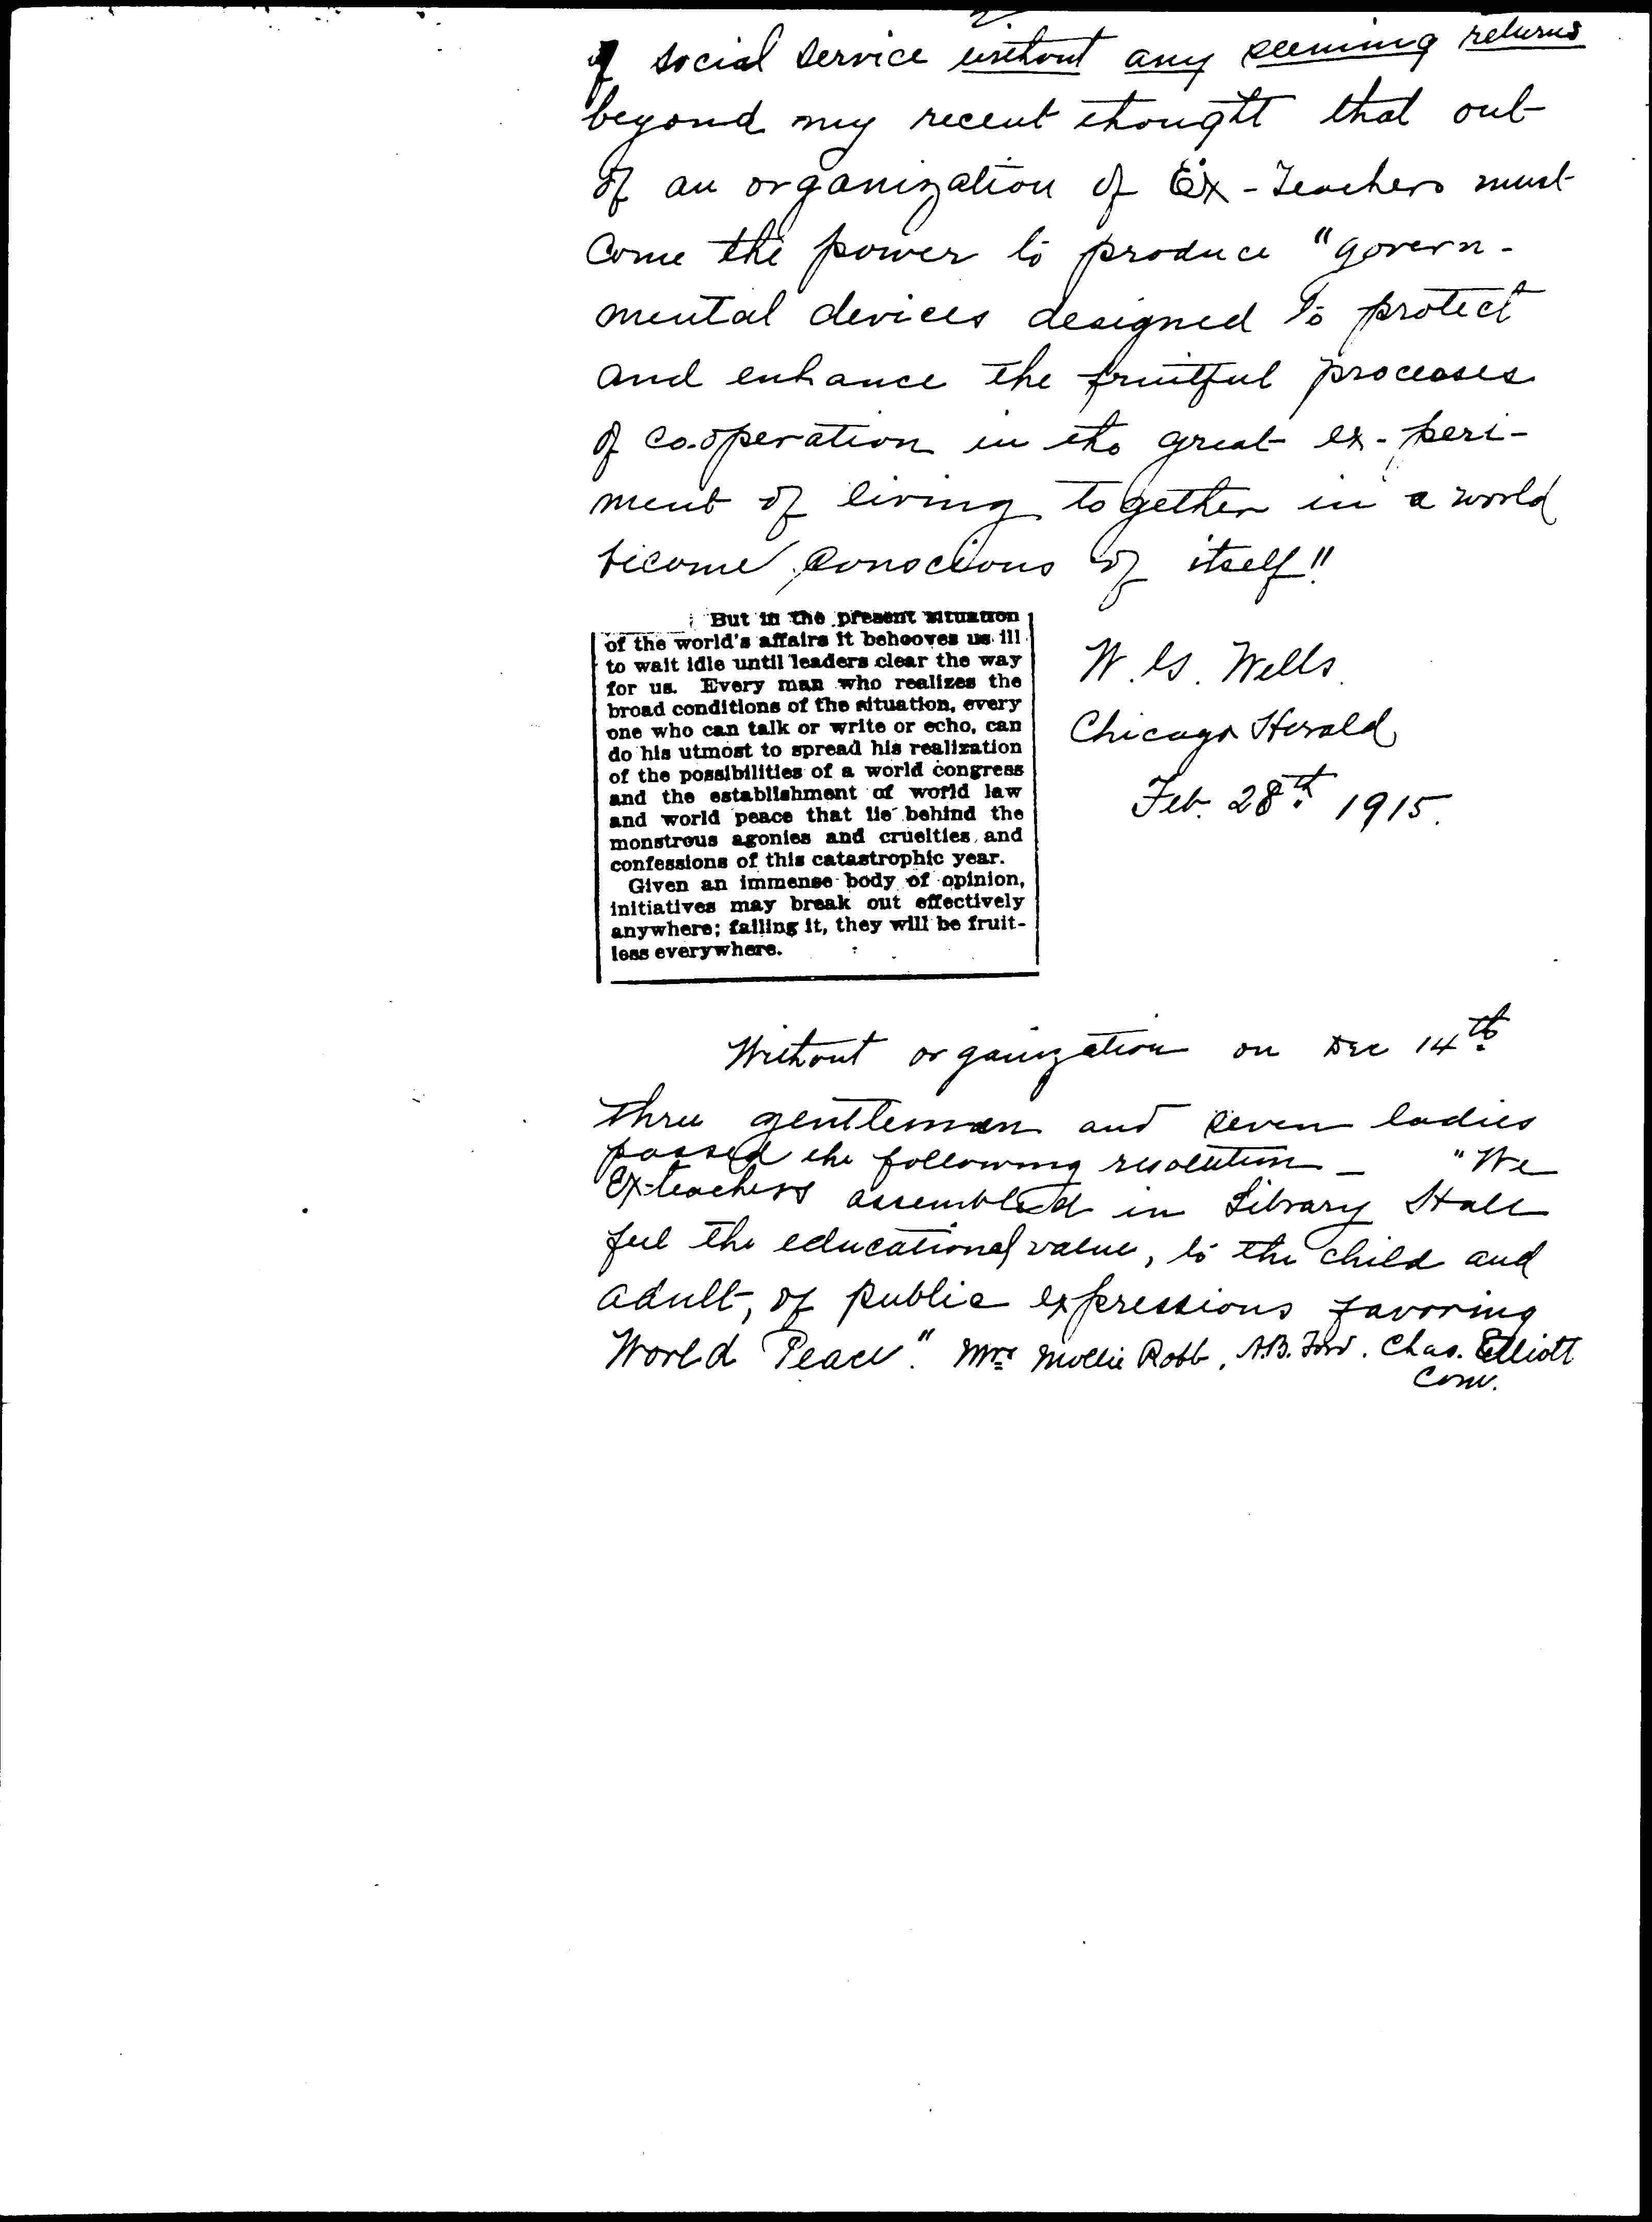 of social service without any seeming returns
beyond my recent thought that out
of an organization of Ex-Teachers must
Come the power to produce "govern-
mental devices designed to protect
and enhance the fruitful processes
of co.operation in the great ex-peri-
ment of living together in a world
become conscious of itself"
But in the present situation
of the world's affairs it behooves us ill
to wait idle until leaders clear the way
for us. Every man who realizes the
broad conditions of the situation, every
one who can talk or write or echo, can
do his utmost to spread his realization
of the possibilities of a world congress
and the establishment of world law
and world peace that lie behind the
monstrous agonies and cruelties and
confessions of this catastrophic year.
Given an immense body of opinion,
initiatives may break out effectively
anywhere; failing it, they will be fruit-
less everywhere.
W. G. Wells.
Chicago Herald
Feb. 28th 1915.
Without organization on Dec 14th
three gentlemen and seven ladies
passed the following resolution - "We
Ex-teachers assembled in Library Hall
feel the educational value, to the child and
adult, of public expressions favoring
World Peace". Mrs Mollie Robb, A.B. Ford. Chas. Elliott
Com.